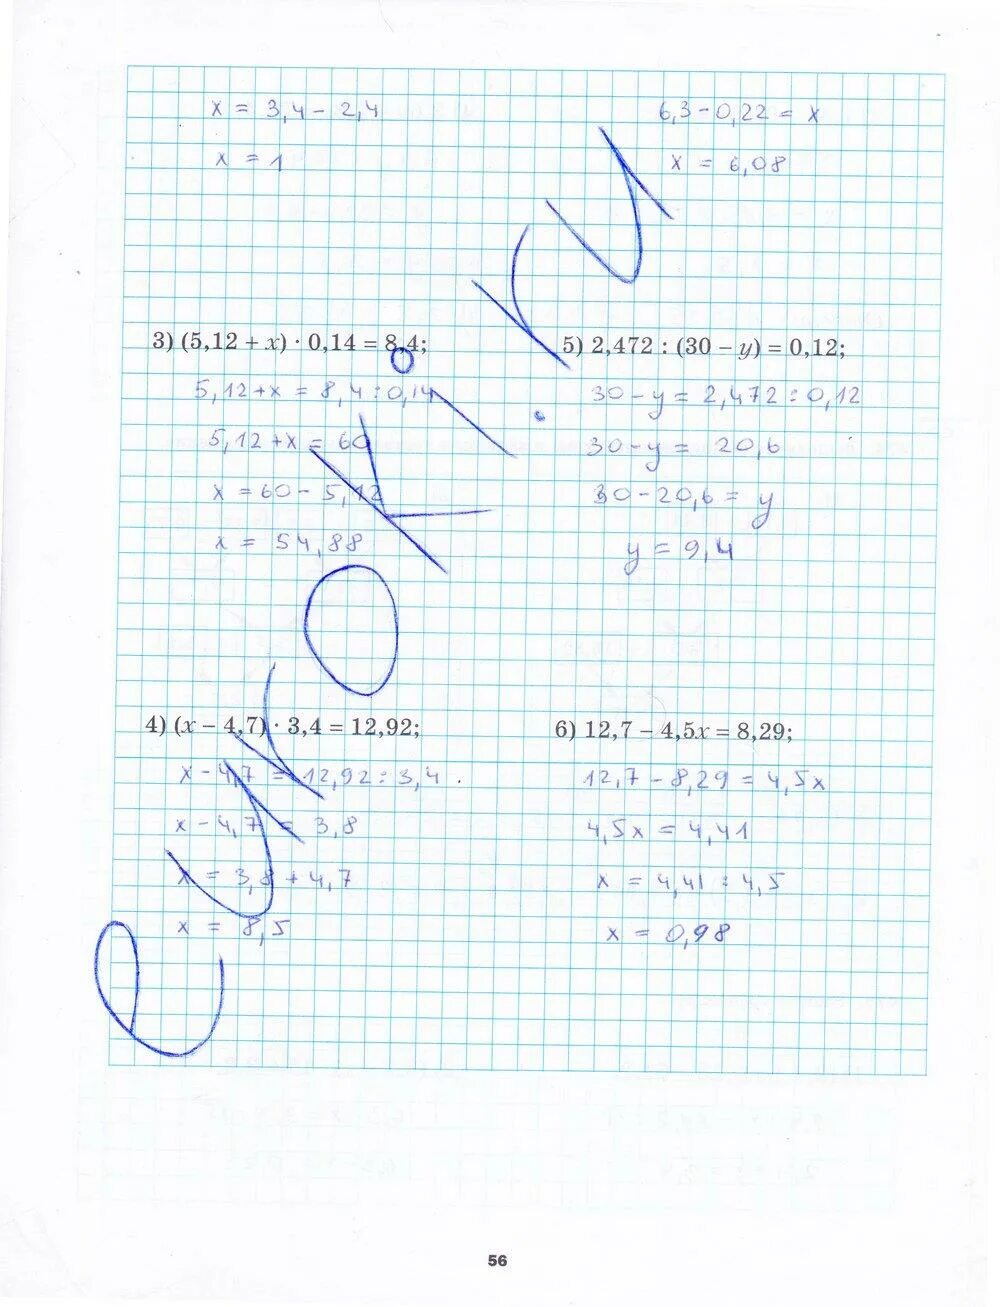 x = 3,4 - 2,4
x = 1
6,3 - 0,22 = x
x = 6,08
3) (5,12 + x) · 0,14 = 8,4;
5,12 + x = 8,4 : 0,14
5,12 + x = 60
x = 60 - 5,12
x = 54,88
5) 2,472 : (30 – y) = 0,12;
30 - y = 2,472 : 0,12
30 - y = 20,6
30 - 20,6 = y
y = 9,4
4) (x – 4,7) · 3,4 = 12,92;
x - 4,7 = 12,92 : 3,4
x - 4,7 = 3,8
x = 3,8 + 4,7
x = 8,5
6) 12,7 – 4,5x = 8,29;
12,7 - 8,29 = 4,5x
4,5x = 4,41
x = 4,41 : 4,5
x = 0,98
euroki.ru
56